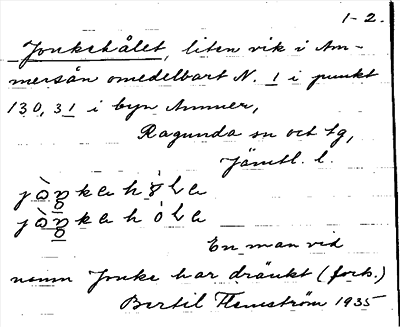 1-2.
Jonkehålet, liten vik i Am-
mersån omedelbart N. 1 i punkt
130, 31 i byn Ammer,
Ragunda sn och tg,
Jämtl. l.
En man vid
namn Jonke har dränkt (forts.)
Bertil Flemström 1935